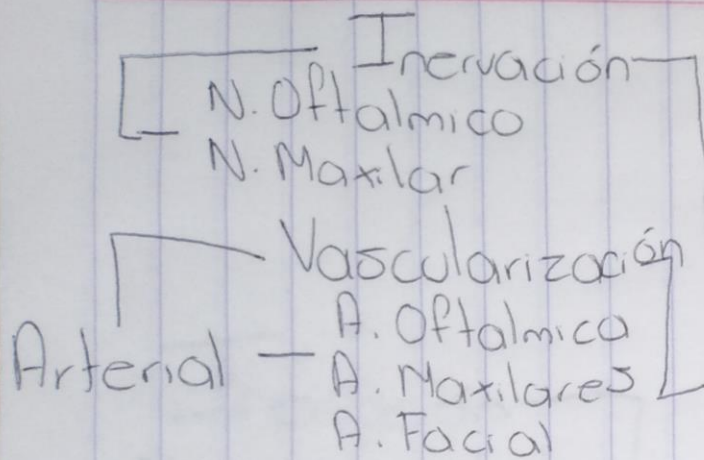 Inervación
N. Oftalmico
N. Maxilar
Vascularización
A. Oftalmica
Arterial - A. Maxilares
A. Facial